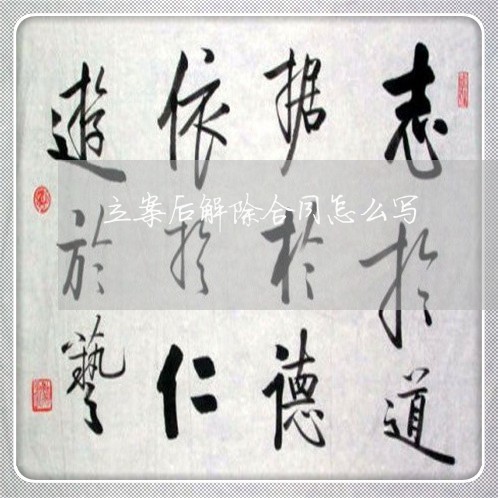 志於道
据於德
依於仁
遊於藝
立案后解除合同怎么写